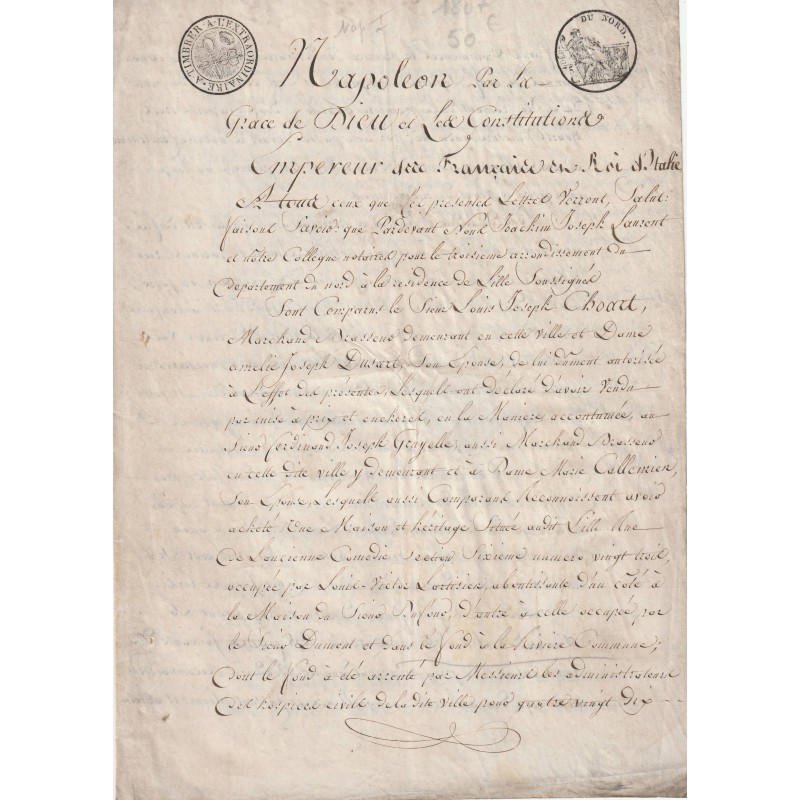 A TIMBRER A L'EXTRAORDINAIRE
DU NORD.
Nap. I
1807
50 c
Napoleon Par La
Grace de Dieu et Les Constitutions
Empereur des Français et Roi d'Italie
A tous ceux que ces presentes Lettres Verront, Salut:
faisons Savoir que Pardevant Nous Joachim Joseph Laurent
et notre Collegue notaires pour le troisieme arrondissement du
Département du nord à la residence de Lille Soussignés
Sont Comparus le Sieur Louis Joseph Choart,
Marchand Brasseur demeurant en cette ville et Dame
amelie Joseph Dusart, Son Epouse, de lui dument autorisée
à L'effet des présentes, Lesquels ont déclaré d'avoir Vendu
par mise à prix et encheres, en la Maniere accoutumée, au
Sieur Ferdinand Joseph Gruyelle, aussi Marchand Brasseur
en cette dite ville y demeurant et à Dame Marie Callemien,
Son Epouse, Lesquels aussi Comparans Reconnoissent avoir
acheté Une Maison et heritage Située audit Lille Rue
de L'ancienne Comédie Section Sixieme numero vingt trois,
occupée par Louis-Victor Lartisien, aboutissante d'un côté à
la Maison du Sieur Dufour, d'autre à celle occupée par
le Sieur Dumont et dans le fond à la Riviere Commune;
dont le fond à été arrenté par Messieurs les administrateurs
des hospices civils de la dite ville pour quatre vingt dix